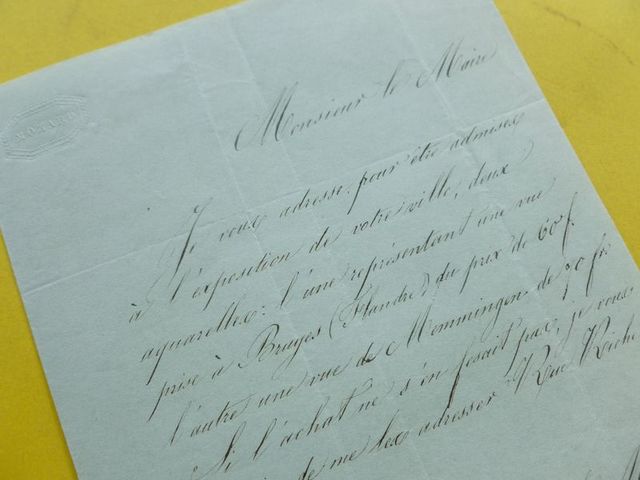 Monsieur le Maire
Je vous adresse pour être admises
à l'exposition de votre ville, deux
aquarelles: l'une représentant une vue
prise à Bruges (Flandre) du prix de 60 f.
l'autre une vue de Memmingen de 70 frs
Si l'achat ne s'en fesait pas, je vous
de me les adresser Rue Riche